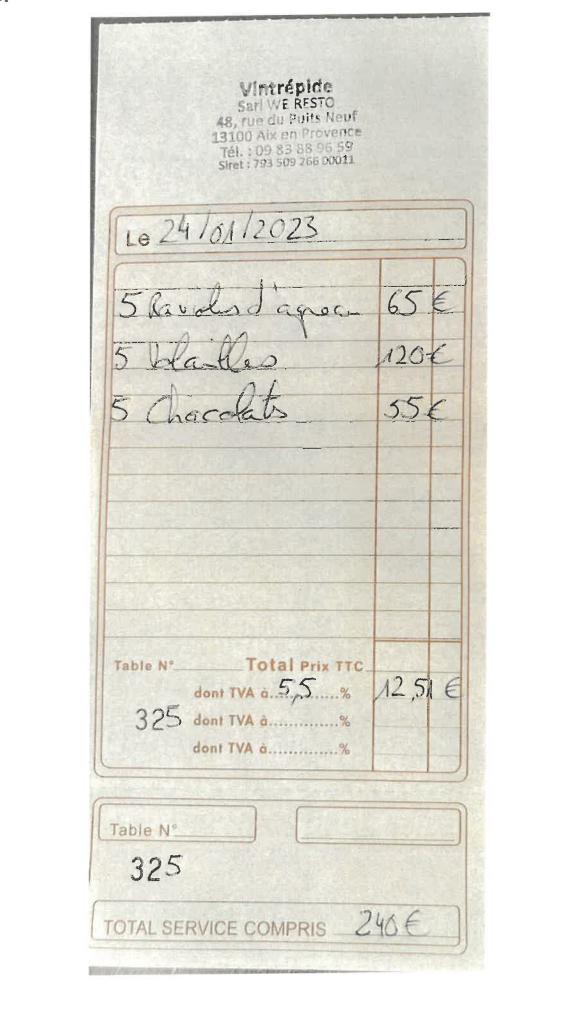 Vintrépide
Sarl WE RESTO
48, rue du Puits Neuf
13100 Aix en Provence
Tél. : 09 83 88 96 59
Siret : 793 509 266 00011
Le 24/01/2023
5 Ravioles d'agneau 65 €
5 Volailles 120 €
5 Chocolats 55 €
Table N° Total Prix TTC
dont TVA à 5,5 % 12,51 €
325 dont TVA à %
dont TVA à %
Table N°
325
TOTAL SERVICE COMPRIS 240 €